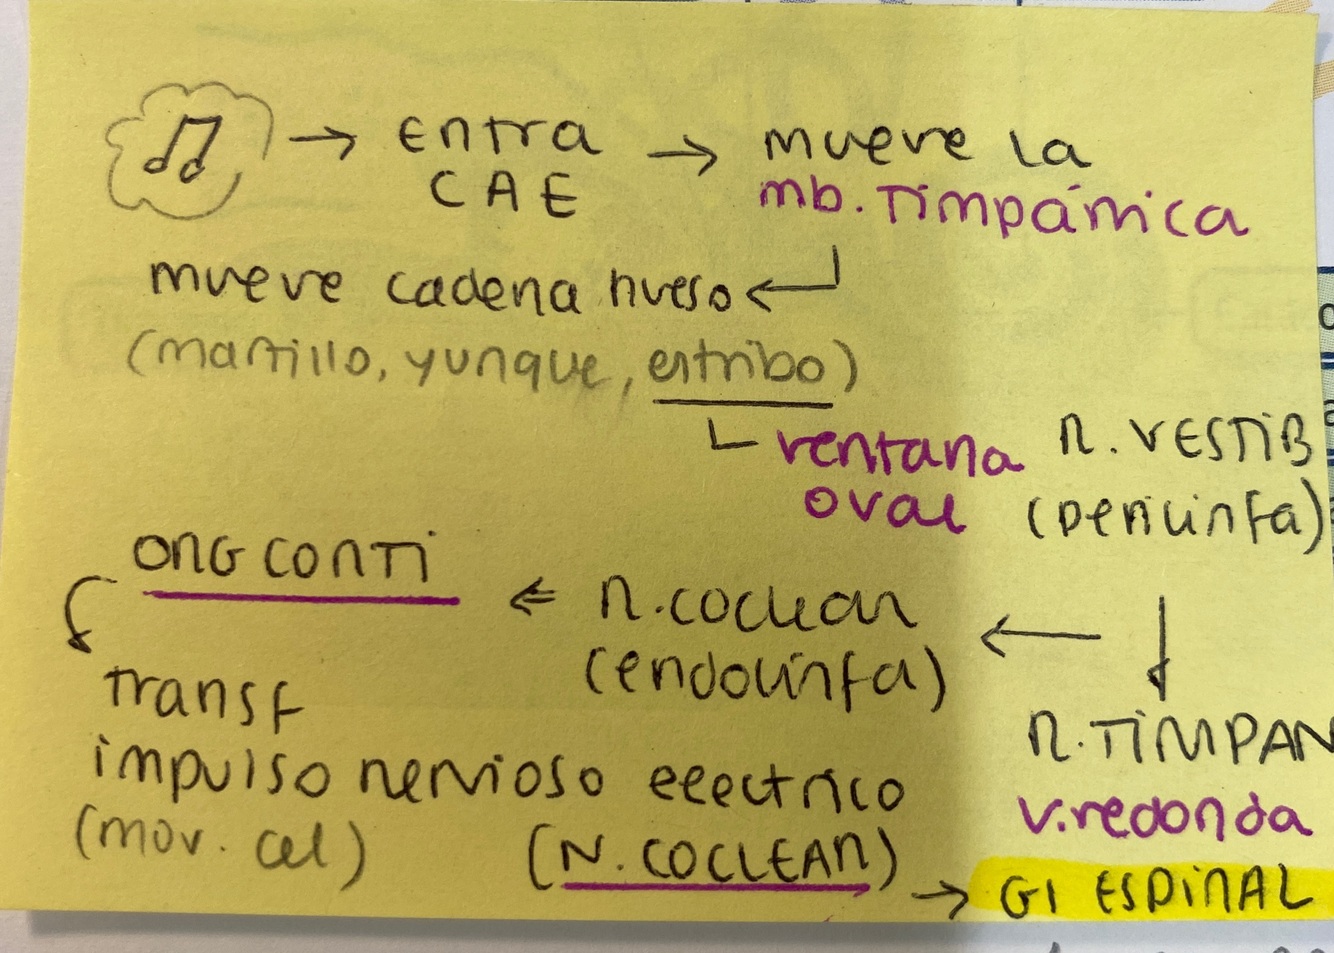 → Entra → mueve la
CAE mb. Timpánica
mueve cadena hueso ←
(martillo, yunque, estribo)
ventana
oval
R. VESTIB
(perilinfa)
ORG CORTI ← R. coclear ←
(endolinfa)
↓
R. TIMPAN
v. redonda
transf
impulso nervioso electrico
(mov. cel) (N. COCLEAR)
→ GI ESPIRAL